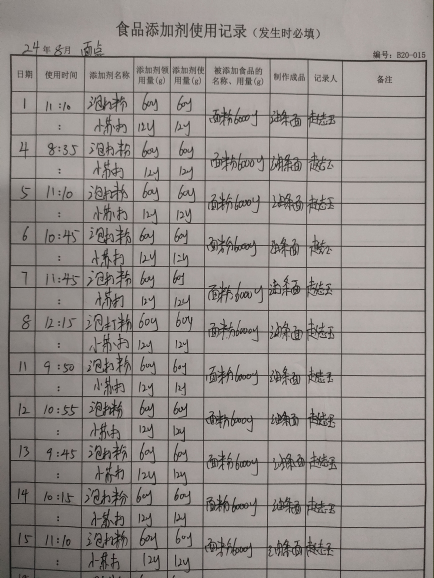 食品添加剂使用记录（发生时必填）
24年8月 面点
编号：820-015
日期 使用时间 添加剂名称 添加剂领用量(g) 添加剂使用量(g) 被添加食品的名称、用量(g) 制作成品 记录人 备注
1 11:10 泡打粉 60g 60g 面粉6000g 油条面
: 小苏打 12g 12g
4 8:35 泡打粉 60g 60g 面粉6000g 油条面
: 小苏打 12g 12g
5 11:10 泡打粉 60g 60g 面粉6000g 油条面
: 小苏打 12g 12g
6 10:45 泡打粉 60g 60g 面粉6000g 油条面
: 小苏打 12g 12g
7 11:45 泡打粉 60g 60g 面粉6000g 油条面
: 小苏打 12g 12g
8 12:15 泡打粉 60g 60g 面粉6000g 油条面
: 小苏打 12g 12g
11 9:50 泡打粉 60g 60g 面粉6000g 油条面
: 小苏打 12g 12g
12 10:55 泡打粉 60g 60g 面粉6000g 油条面
: 小苏打 12g 12g
13 9:45 泡打粉 60g 60g 面粉6000g 油条面
: 小苏打 12g 12g
14 10:15 泡打粉 60g 60g 面粉6000g 油条面
: 小苏打 12g 12g
15 11:10 泡打粉 60g 60g 面粉6000g 油条面
: 小苏打 12g 12g